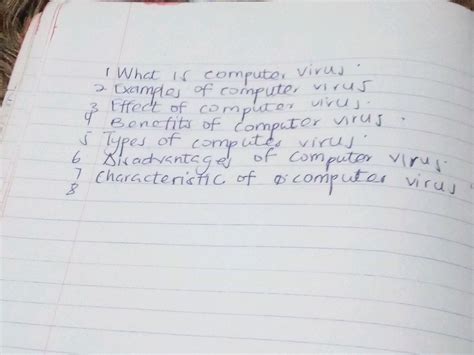 1 What is computer virus.
2 Examples of computer virus
3 Effect of computer virus.
4 Benefits of computer virus.
5 Types of computer virus.
6 Disadvantages of computer virus.
7 Characteristic of computer virus
8